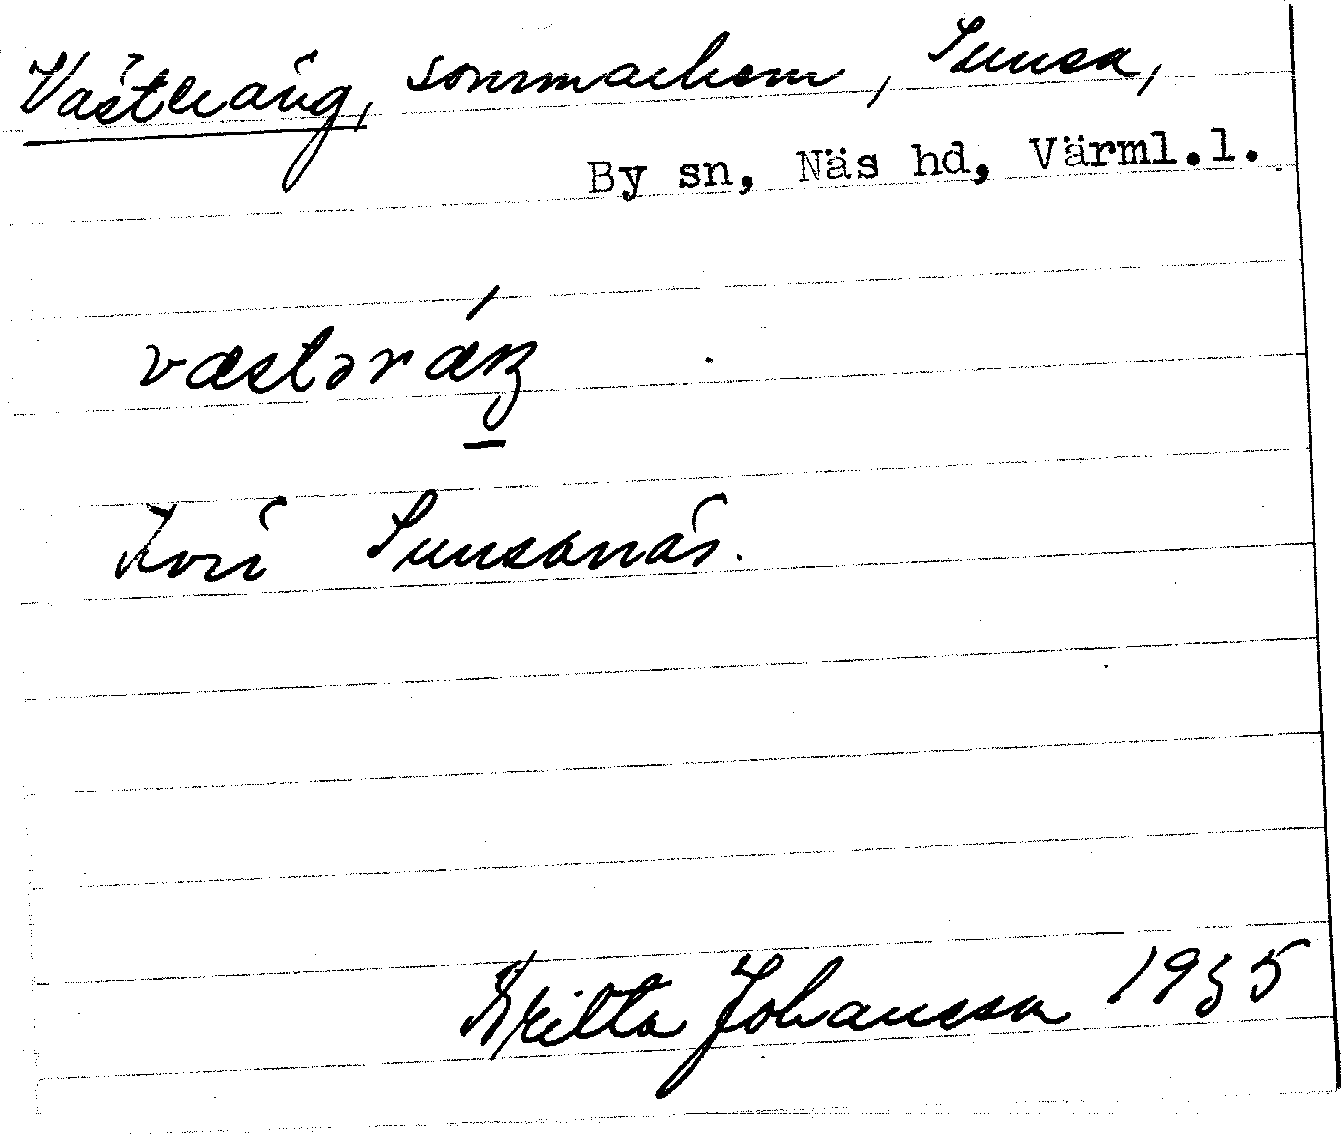 Västeräng, sommarhem, Sunsa,
By sn, Näs hd, Värml.l.
væstəráŋ
Invi Sunsanäs.
Britta Johansson 1935